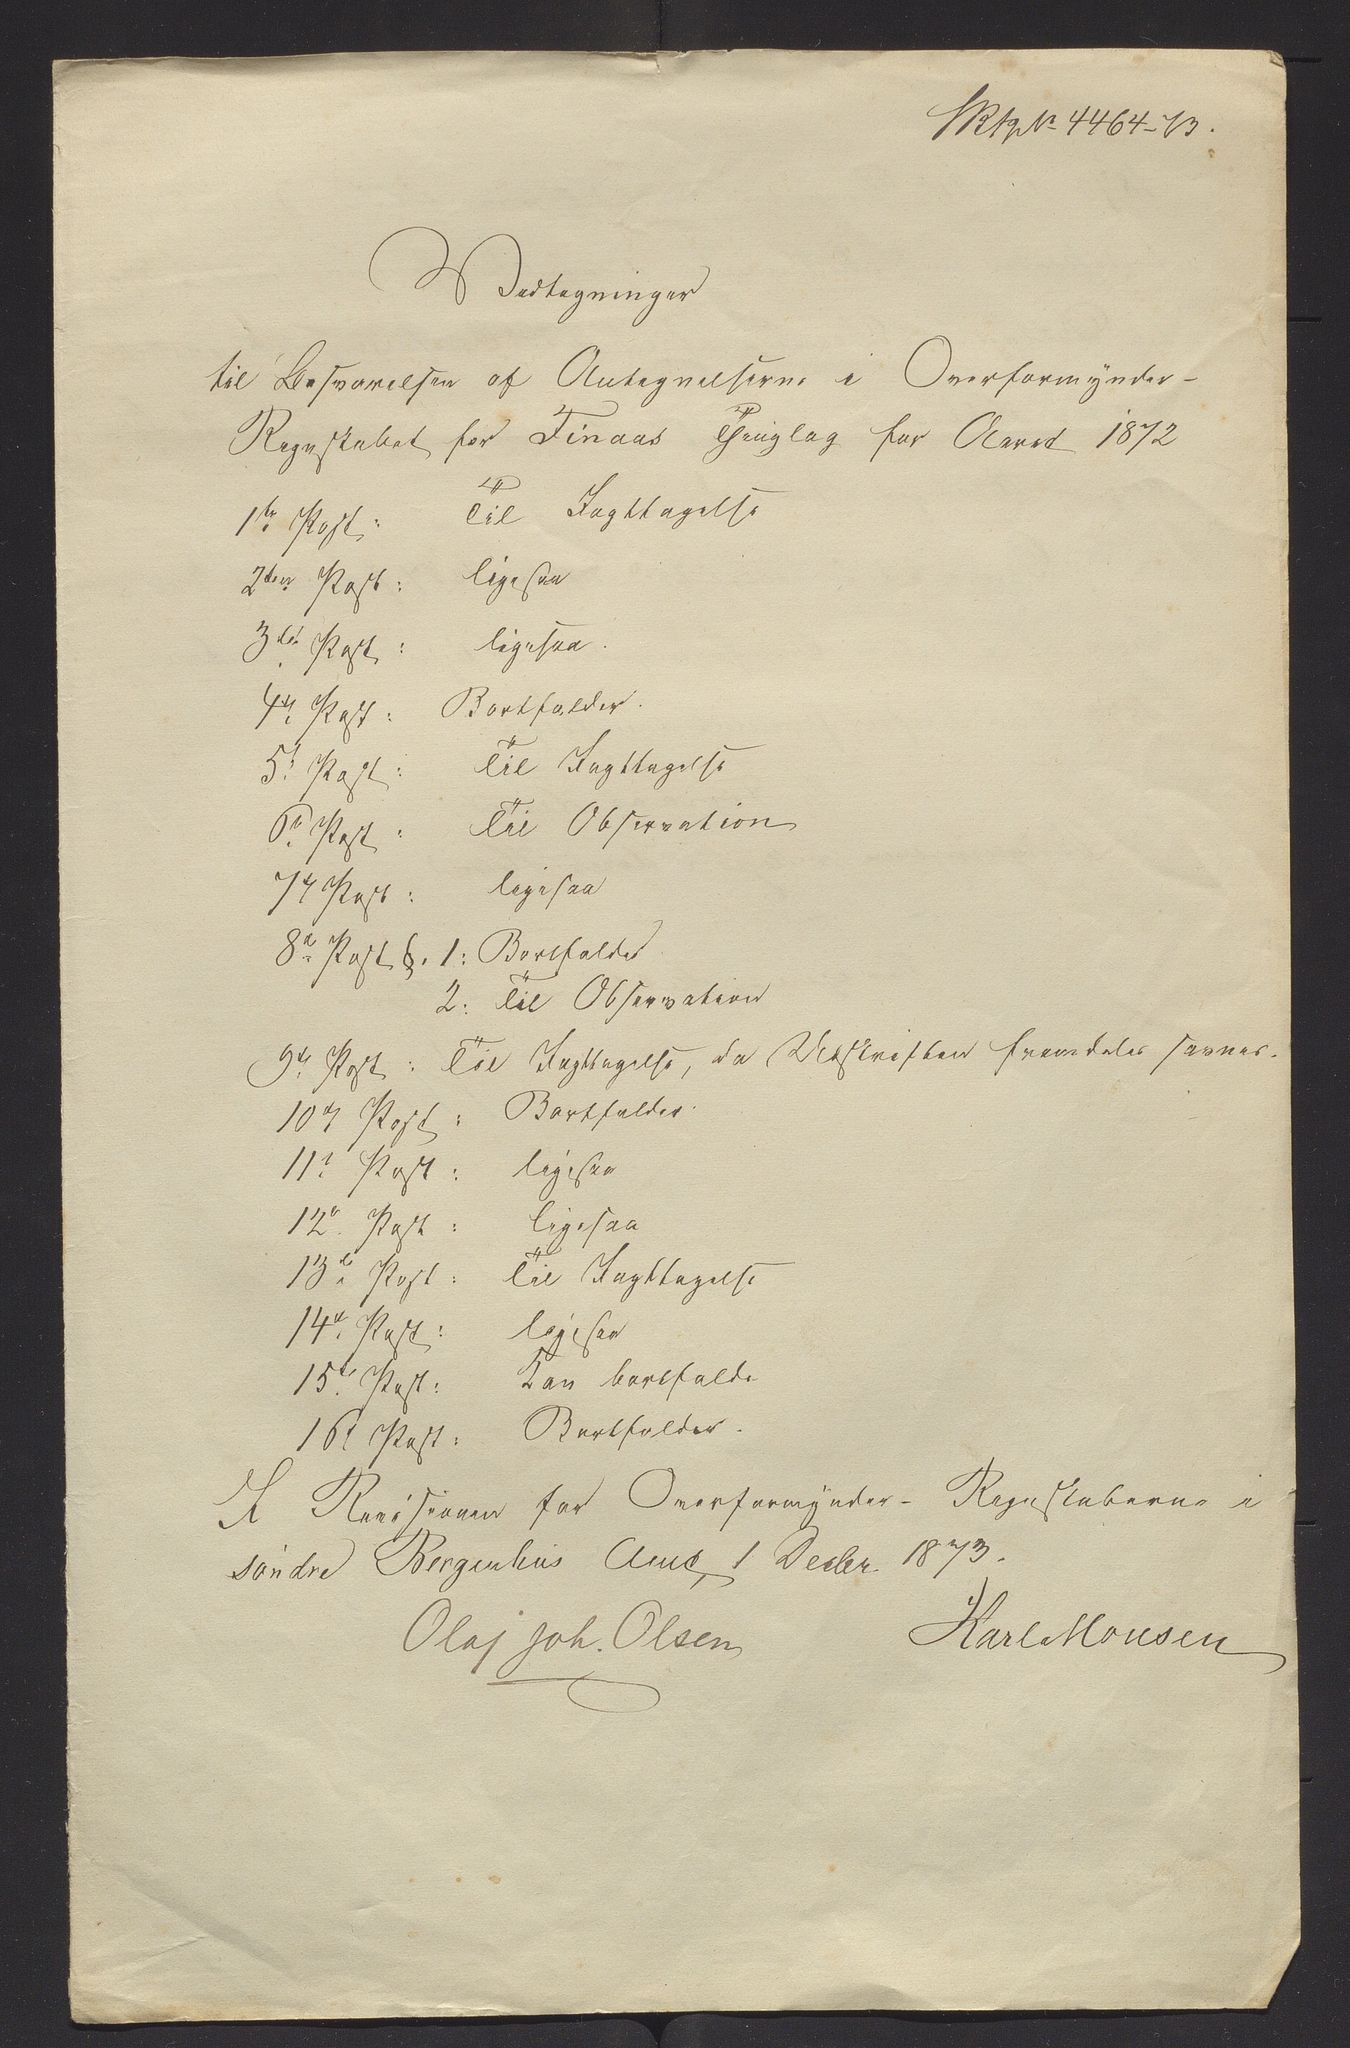 No 4464-73.
Vedtegninger
til Besvarelsen af Antegnelserne i Overformynder-
Regnskabet for Finaas Thinglag for Aaret 1872
1te Post: Til Iagttagelse
2den Post: ligesaa
3die Post: ligesaa.
4de Post: Bortfalder.
5te Post: Til Iagttagelse
6te Post: Til Observation
7de Post: ligesaa
8de Post §. 1: Bortfalder
2: Til Observation
9de Post: Til Iagttagelse, da Udskriften fremdeles savnes.
10de Post: Bortfalder.
11te Post: ligesaa
12te Post: ligesaa
13de Post: Til Iagttagelse
14de Post: ligesaa
15de Post: Kan bortfalde
16de Post: Bortfalder.
I Revisionen for Overformynder-Regnskaberne i
søndre Bergenhus Amt, 1 Decbr. 1873.
Olaf Joh. Olsen Karl Monsen